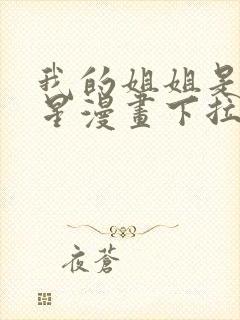 我的姐姐是
星漫畫下拉
夜蒼